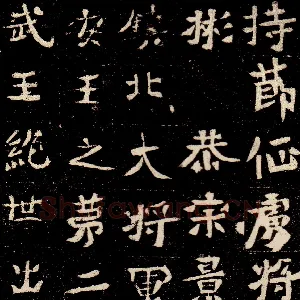 持節征虜将
彬恭宗景
鎮北大将軍
安王之第二
武王絶世出